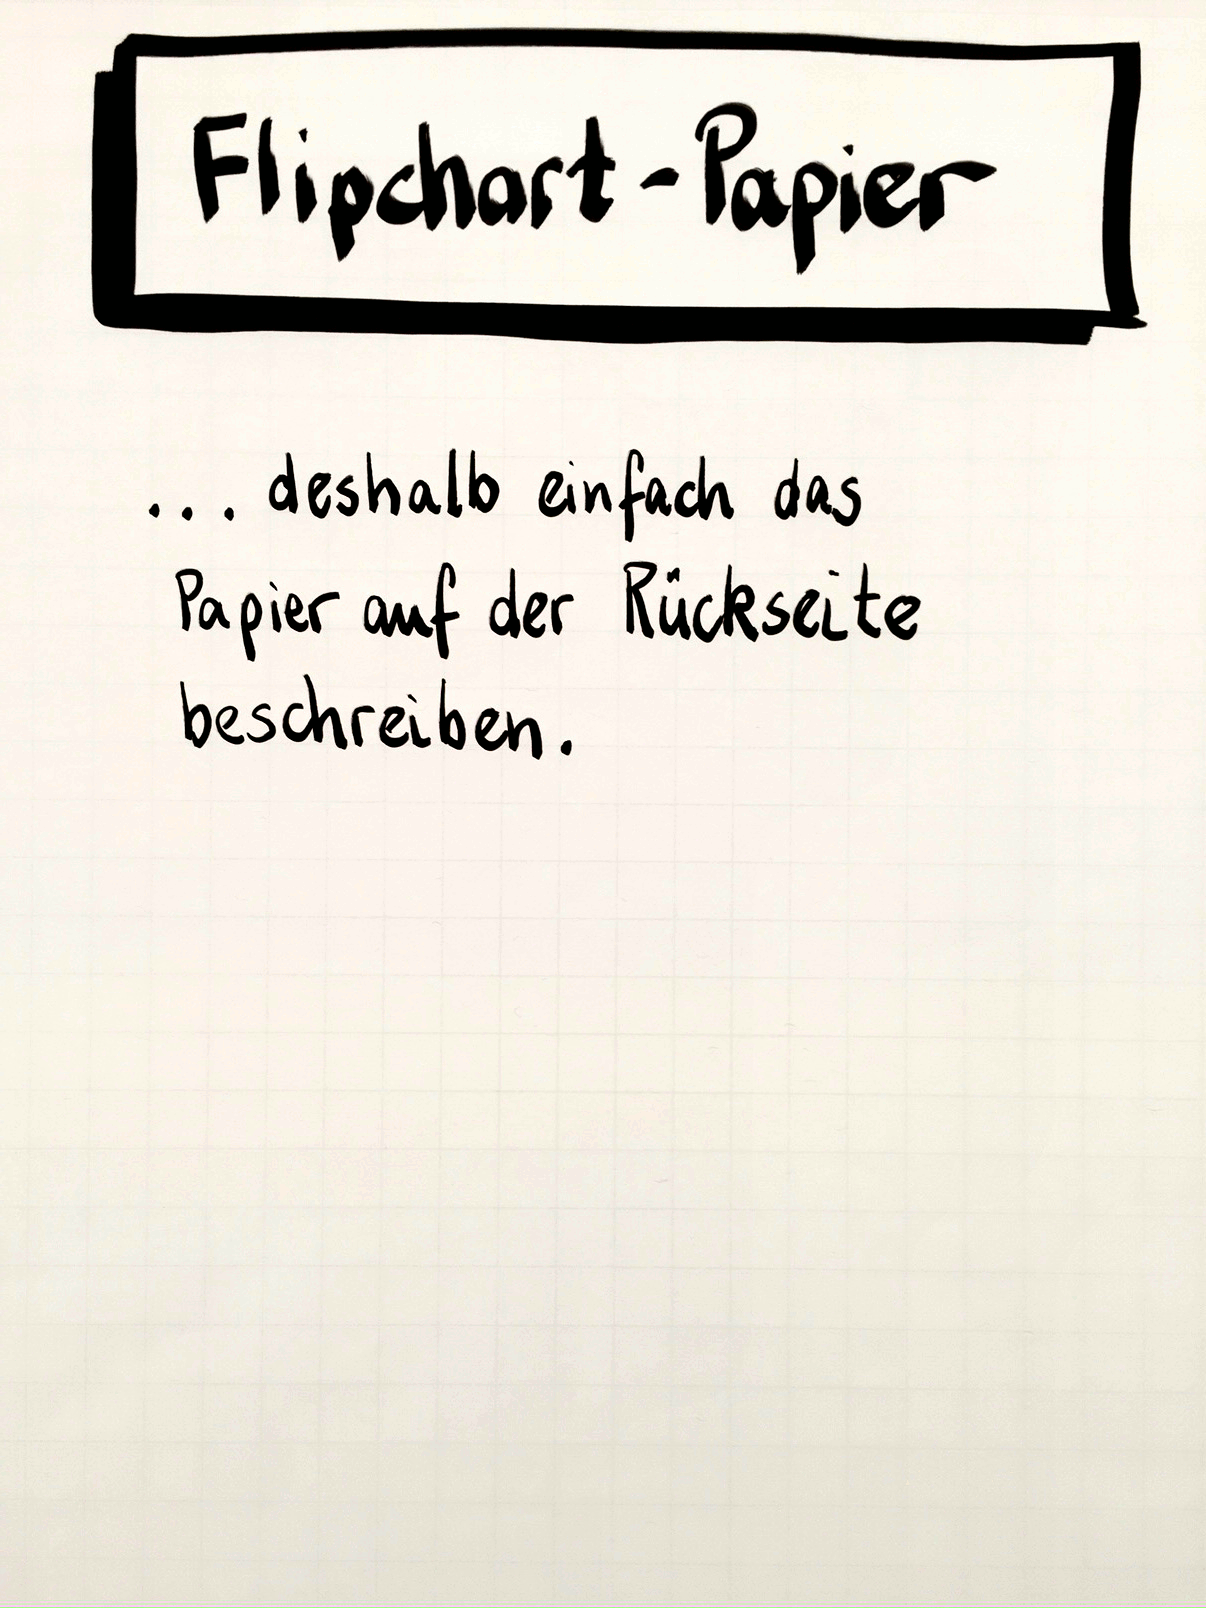 Flipchart-Papier
... deshalb einfach das
Papier auf der Rückseite
beschreiben.